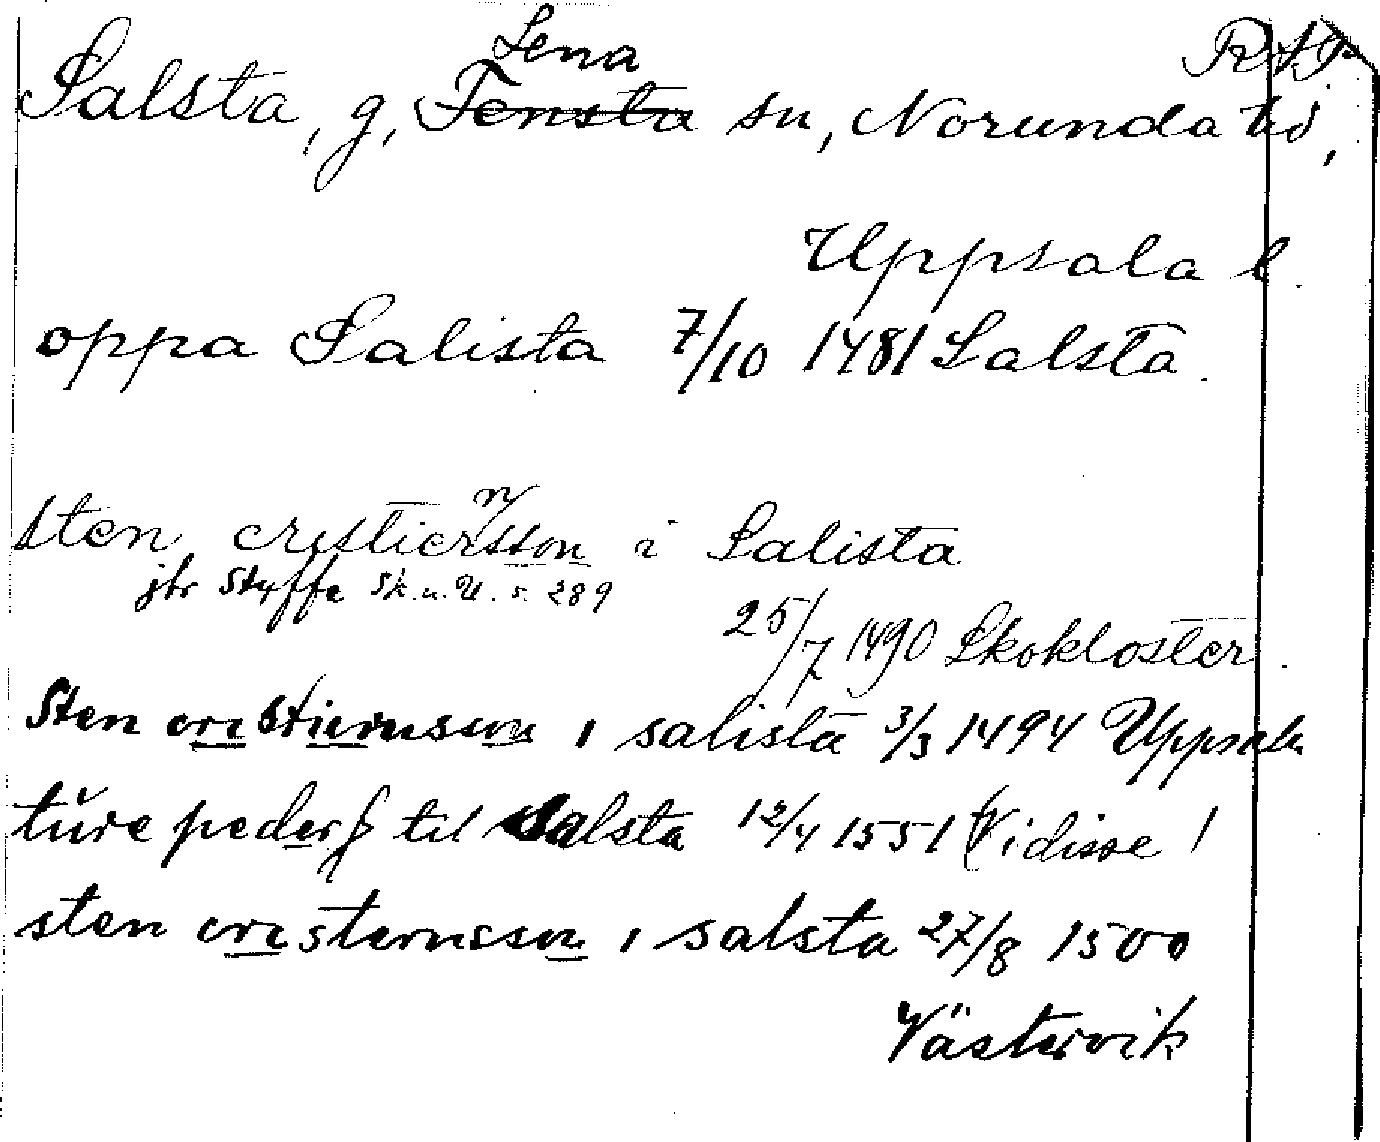 Lena
Salsta, g, Tensta sn, Norunda hd,
Uppsala l.
oppa Salista 7/10 1481 Salsta.
sten cristiernsson i Salista
jfr Styffe Sk. u. U. s. 289
25/7 1490 Skokloster.
Sten cristiernsson i salista 3/3 1494 Uppsala
tŭre peders til Salsta 12/4 1551 (Vidisse)
sten cristernsson i salsta 27/8 1500
Västervik